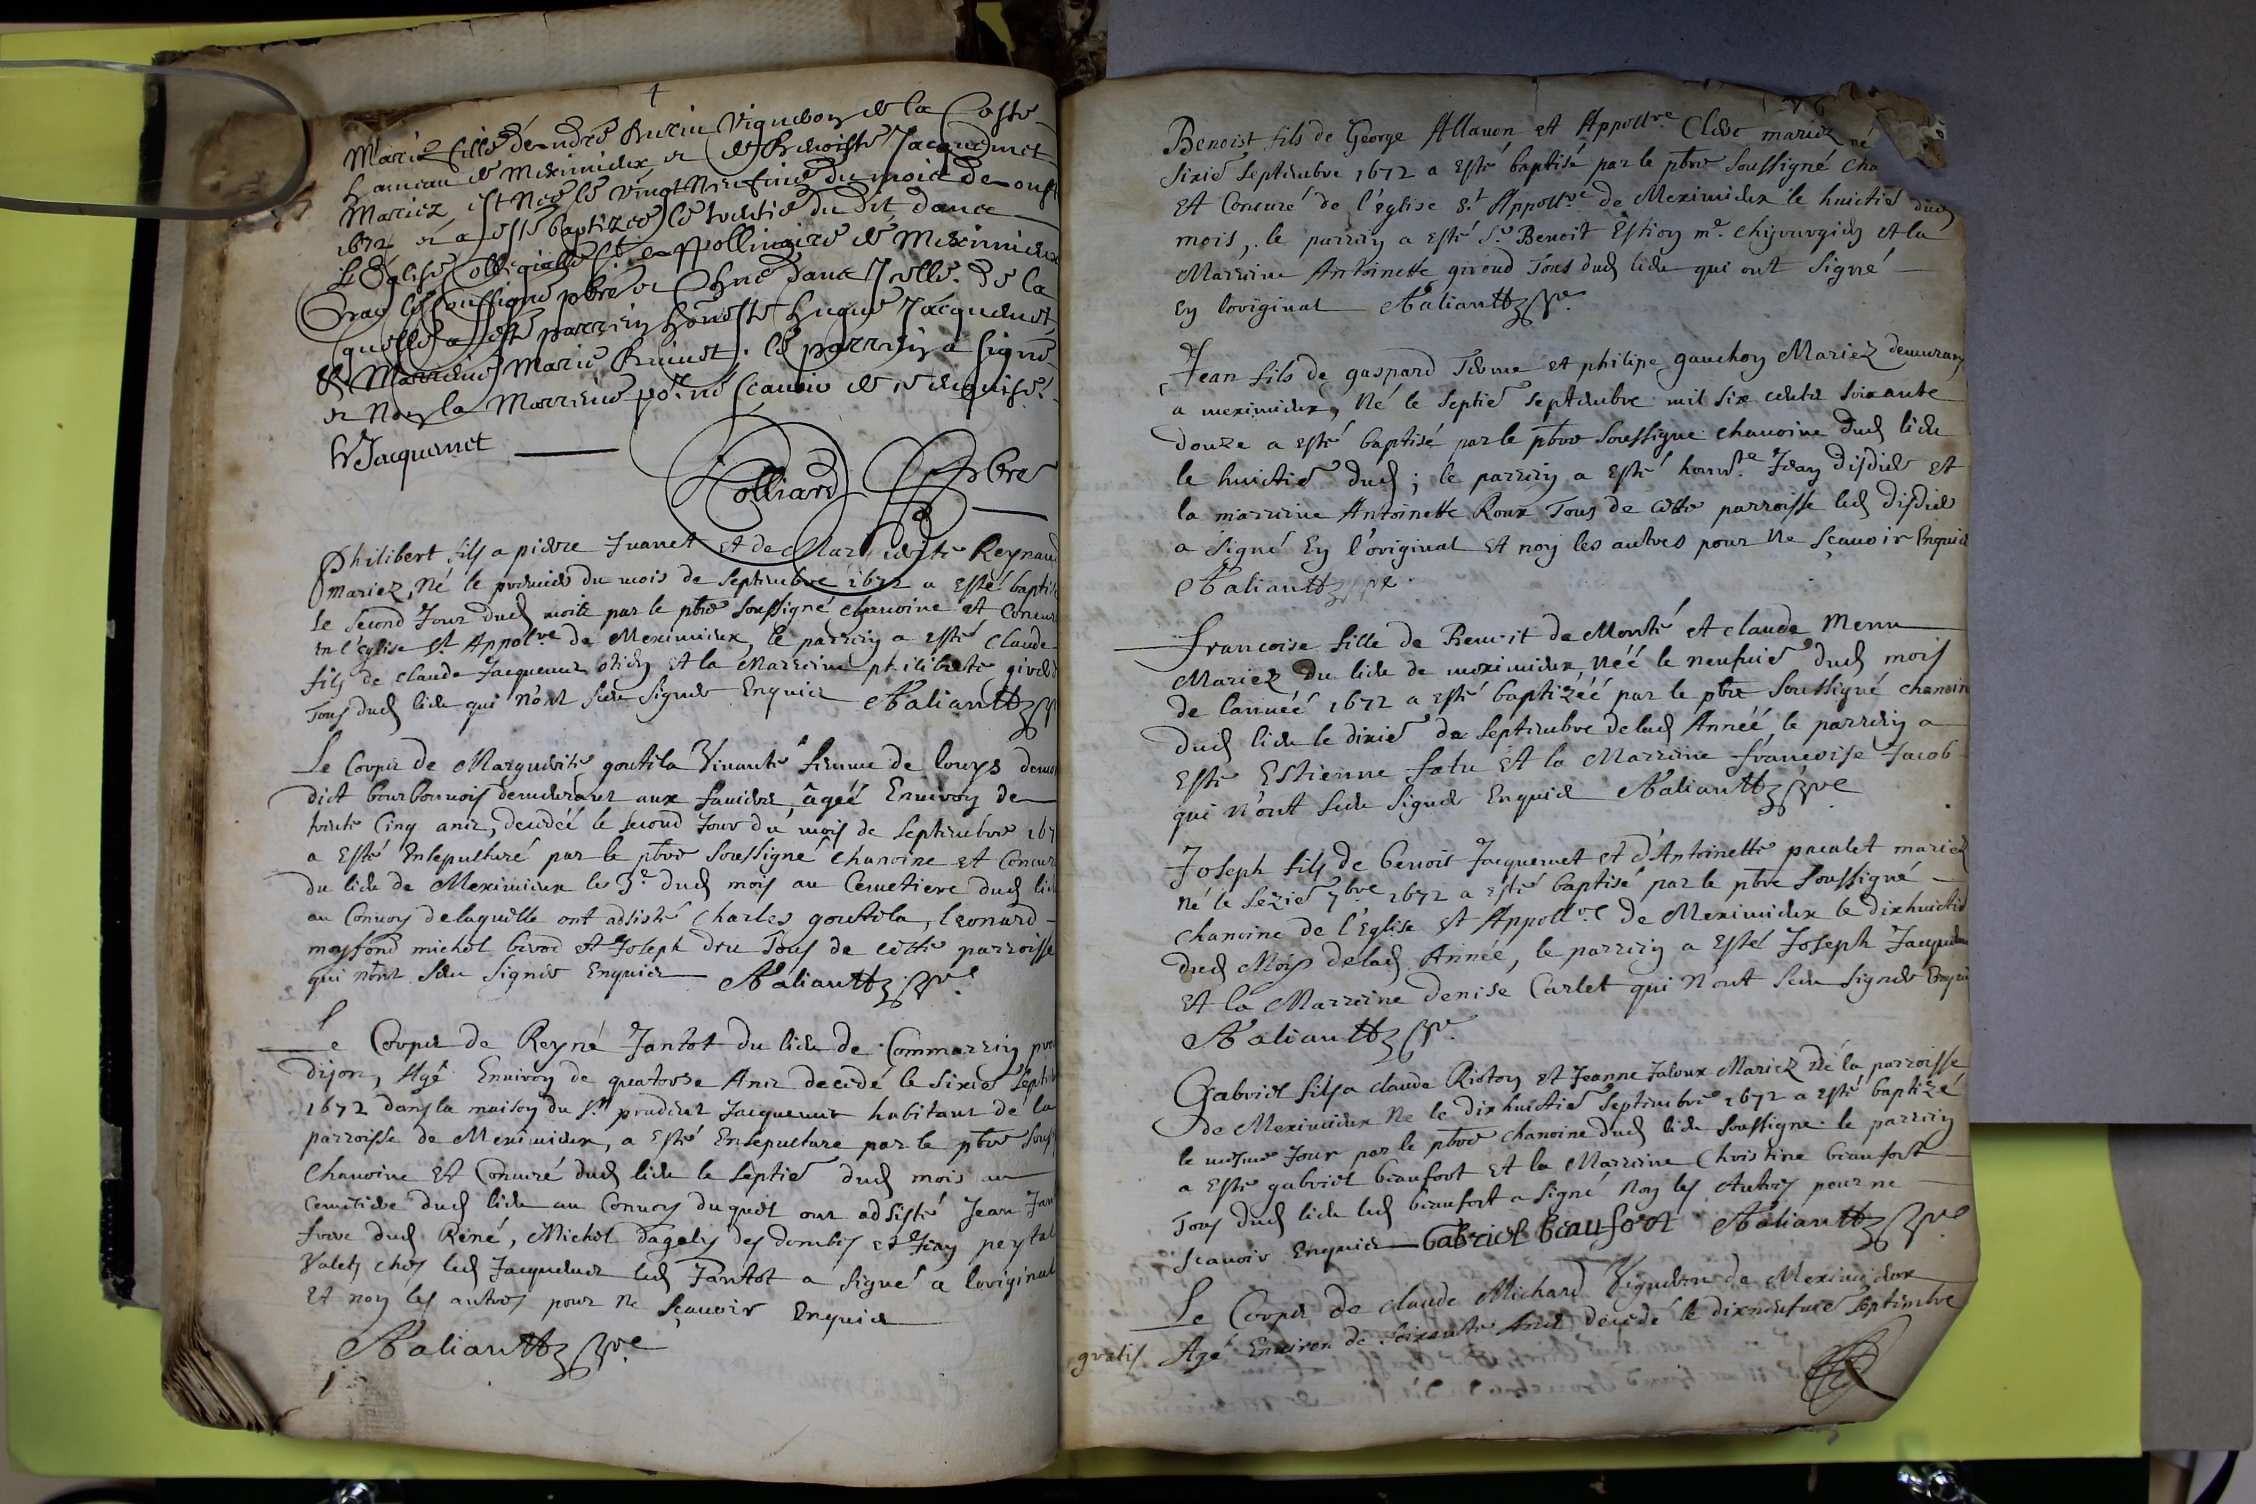 Marie fille d'endré Burin Vigneron de la Coste
hameau de Meximieux et de Benoiste Jacquemet
Mariez, est Née le vingt Neufvie du mois de oust
1672 et a esté baptizee le trentie du dit dans
L'Eglise Collegialle St apollinaire de Meximieux
par le soussigné pbre et Chne dans Icelle. De la
quelle a esté parrein honeste hugue Jacquemet
et Marreine Marie Brunet. le parrein a signé
et Non la Marreine po.r ne scavoir de ce enquise.
h Jacquemet
Colliard pbre
Philibert fils a pierre Juanet et de Marguerite Reynaud
mariez, Né le premier du mois de Septembre 1672 a esté bapti
le second Jour dud mois par le pbre soussigné chanoine et Concur
en l'eglise St Appol.re de Meximieux, le parrein a esté Claude
fils de claude Jacquemet et la Marreine philiberte
Tous dud lieu qui n'ont sceu signer Enquis Aaliautt pre
Le Corps de Marguerite goutila Vivante femme de louys
dict bourbonnois demeurant aux, âgéé Environ de
trente Cinq ans, decedéé le second Jour du mois de Septembre 167
a esté Ensepulturé par le pbre soussigné chanoine et Concur
du lieu de Meximieux le 3e dud mois au Cemetiere dud lieu
au Convoy de laquelle ont adsisté Charles goutila, leonard
mayfond michel et Joseph dru Tous de cette parroisse
qui n'ont sceu signer Enquis Aaliautt pre
Le Corps de Reyné Jantot du lieu de Commarrin
dijon, Agé Environ de quatorse Ans decedé le sixie Septem
1672 dans la maison du Sr prudent Jacquemet habitant de la
parroisse de Meximieux, a esté Ensepulture par le pbre Souss
Chanoine et Concuré dud lieu le septie dud mois au
Cemetiere dud lieu au Convoy duquel ont adsisté Jean Jan
frere dud Réné, Michel dagely des dombes et Jean peytal
Valets ches led Jacquemet led Jantot a signé a loriginal
et non les autres pour ne sçavoir Enquis
Aaliautt pre
Benoist fils de George Allauon et Appoll.re Clerc mariez né
sixie Septembre 1672 a esté baptisé par le pbre soussigné cha
et Concuré de l'église S.t Appoll.re de Meximieux le huictie dud
mois, le parrein a esté S.r Benoit Estion m.e chyrurgien et la
Marreine Antoinette giroud Tous dud lieu qui ont signé
En loriginal Aaliautt pre
Jean fils de gaspard Terme et philipe gauchon Mariez demeurans
a meximieux, Né le septie septembre mil six cents soixante
douze a esté baptisé par le pbre soussigné chanoine dud lieu
le huictie dud; le parrein a esté hon.te Jean disdier et
la marreine Antoinette Roux Tous de cette parroisse led disdier
a signé En l'original et non les autres pour ne sçavoir Enquis
Aaliautt pre
Francoise fille de Benoit de Monté et claude Menu
Mariez du lieu de meximieux Néé le neufuie dud mois
de lannéé 1672 a esté baptizéé par le pbre soussigné chanoine
dud lieu le dixie de Septembre de lad Annéé, le parrein a
esté Estienne fatu et la Marreine francoise Jacob
qui n'ont sceu signer Enquis Aaliautt pre
Joseph fils de benoit Jacquemet et d'Antoinette pacalet mariez
né le sezie 7bre 1672 a esté baptisé par le pbre soussigné
chanoine de l'Eglise St Appoll.re de Meximieux le dixhuictie
dud Mois de lad Annéé, le parrein a esté Joseph Jacquem
et la Marreine denise Carlet qui n'ont sceu signer Enquis
Aaliautt pre
Gabriel fils a claude Riston et Jeanne Jaloux Mariez de la parroisse
de Meximieux Né le dixhuictie septembre 1672 a esté baptizé
le mesme Jour par le pbre chanoine dud lieu soussigne le parrein
a esté gabriel beaufort et la Marreine Christine beaufort
Tous dud lieu led beaufort a signé non les Autres pour ne
scavoir Enquis Gabriel beaufort Aaliautt pre
Le Corps de claude Michard Vigneron de Meximieux
gratis Agé Environ de soixante Ans decedé le dixneufuie Septembre